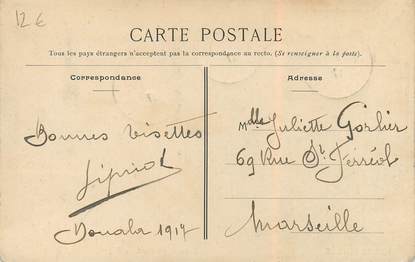 12 €
CARTE POSTALE
Tous les pays étrangers n'acceptent pas la correspondance au recto. (Se renseigner à la poste).
Correspondance
Adresse
Bonnes bisettes
Douala 1917
Mdlle Juliette Gorlier
69 Rue St Ferréol
Marseille